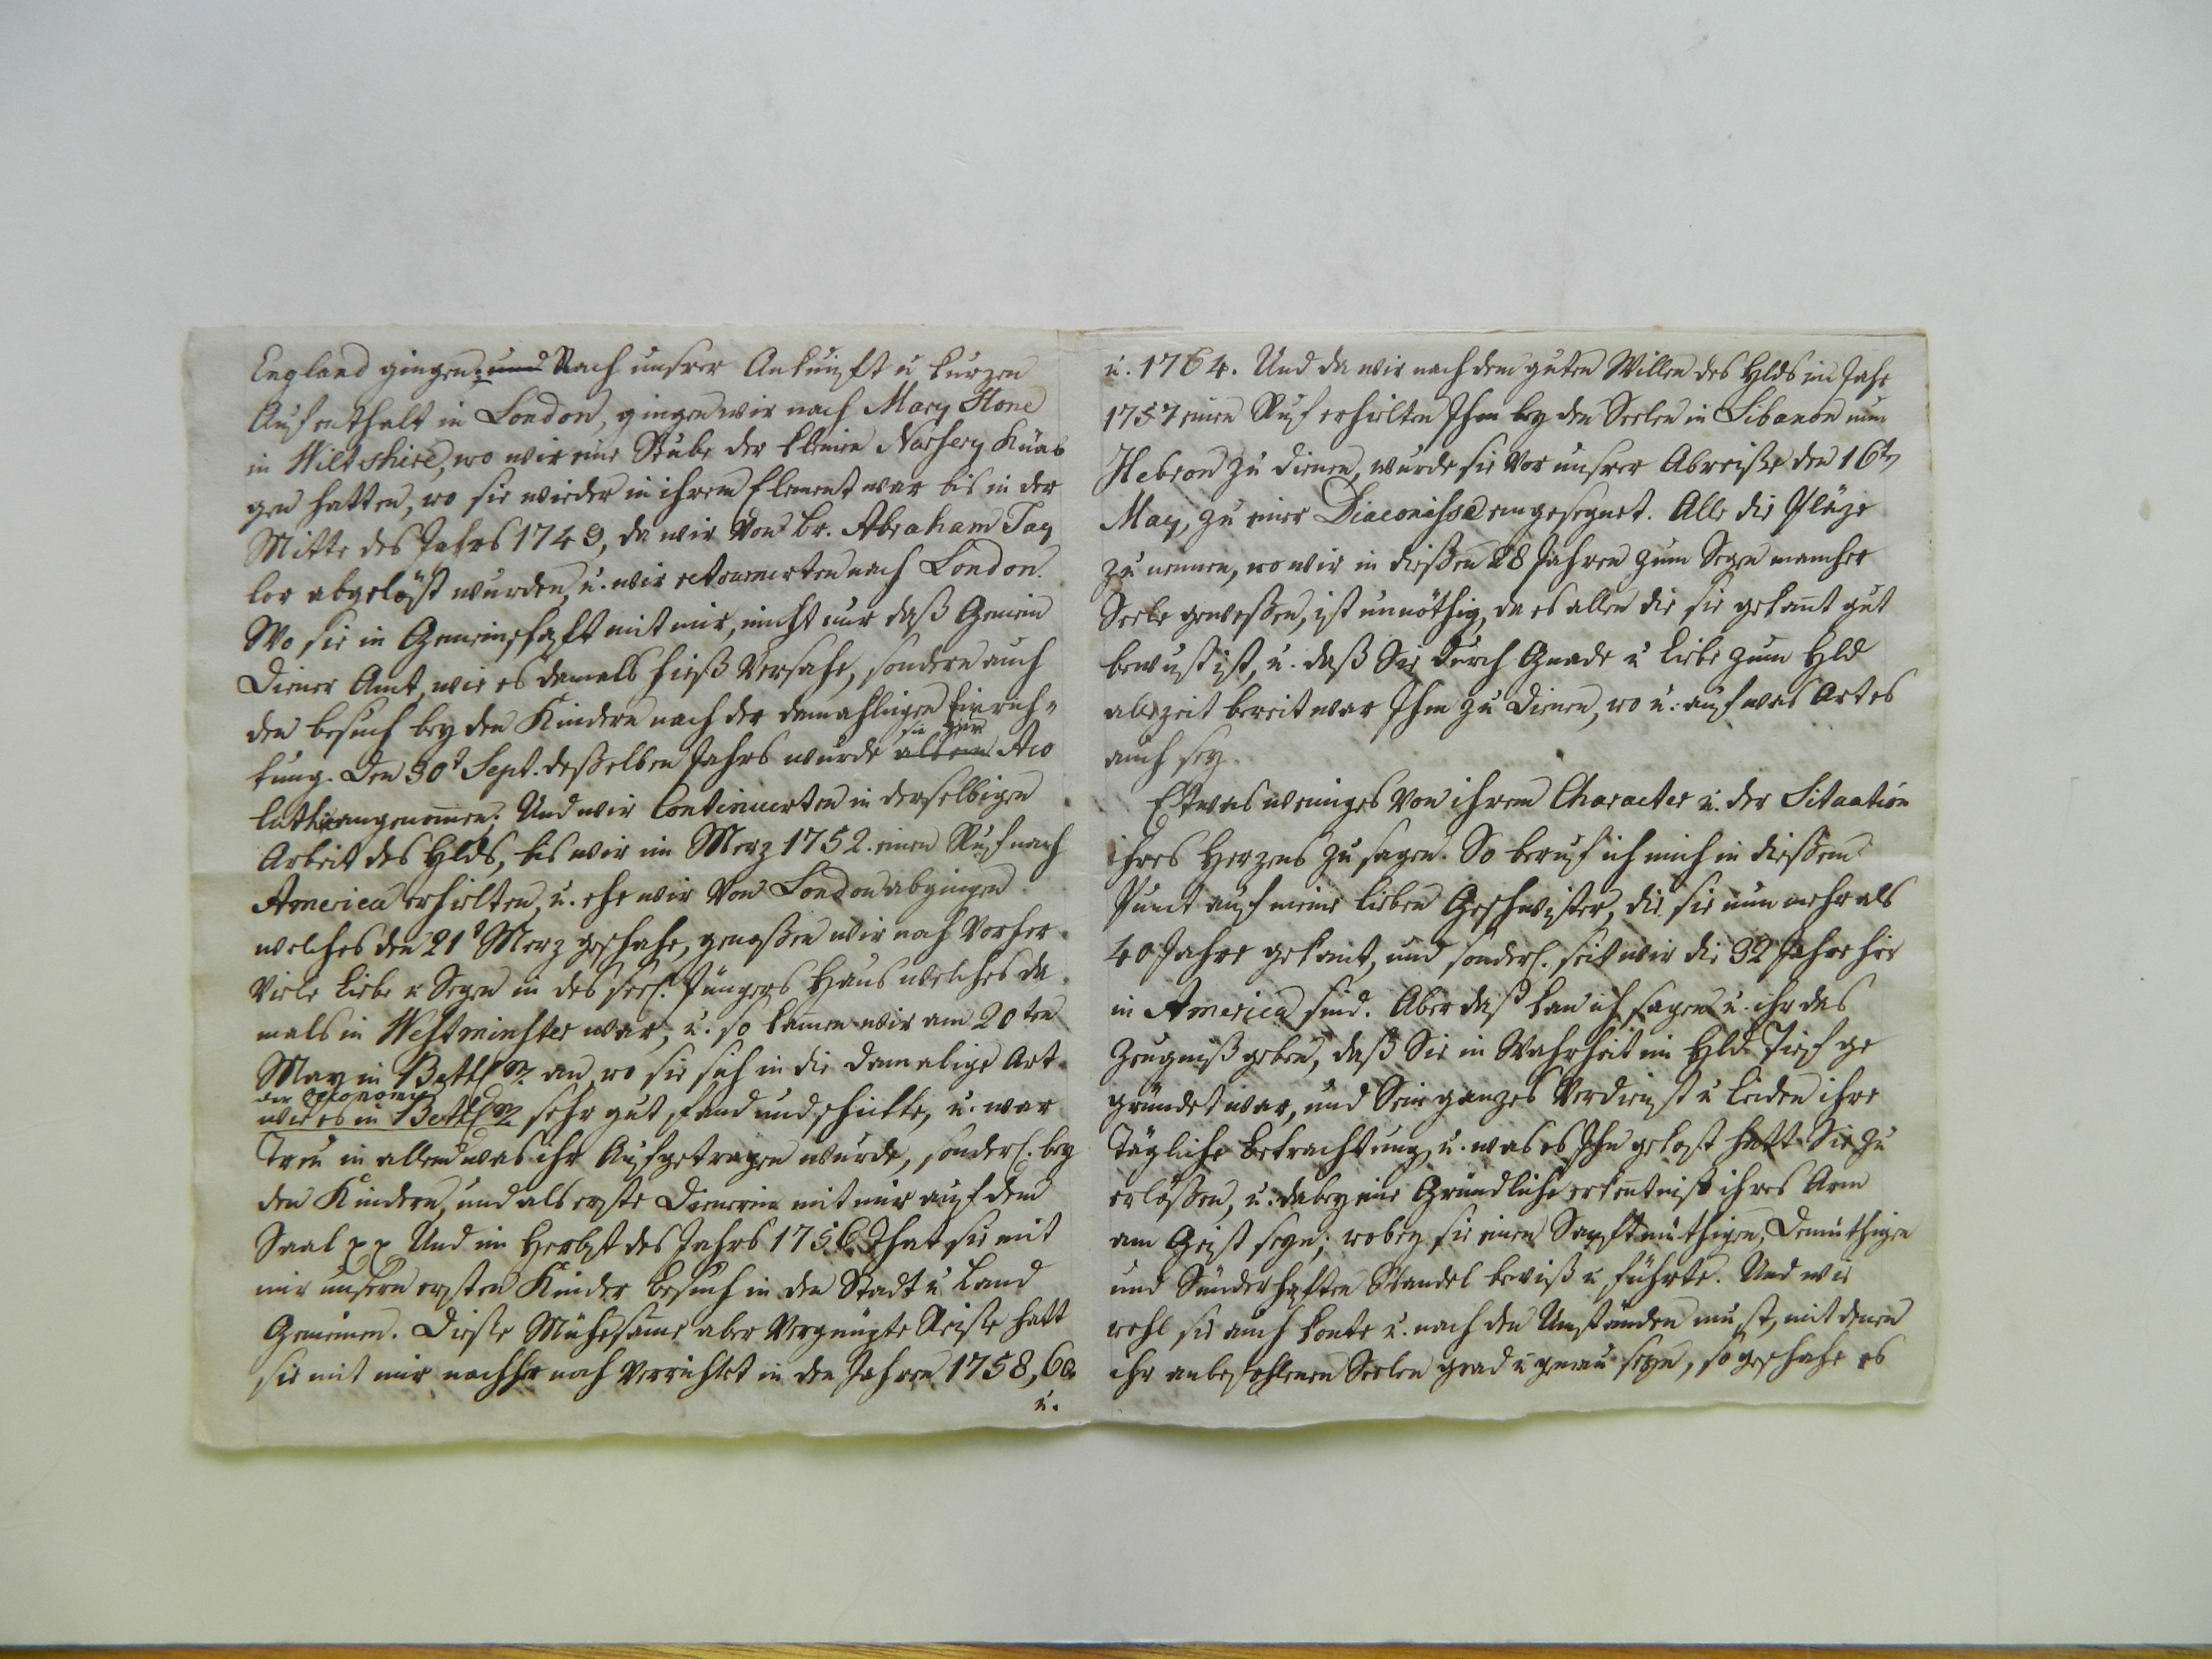 England gingen; und Nach unsrer Ankunft u kurzen
Aufenthalt in London, gingen wir nach Mary Stone
in Wiltshire, wo wir eine Stube der kleinen Nursery Knäb
gen hatten, wo sie wieder in ihrem Element war bis in der
Mitte des Jahrs 1749, da wir von br. Abraham Tay
lor abgelöst wurden, u. wir retournirten nach London.
Wo sie in Gemeinschafft mit mir, nicht nur daß Gemein
Diener Amt, wie es damals hieß versahe, sondern auch
den besuch bey den Kindern nach der damahligen Einrich-
sie zur
tung. Den 30t Sept. deßelben Jahrs wurde allein Aco
luthie angenom̅en; Und wir Continuirten in derselbigen
Arbeit des Hlds, bis wir im Merz 1752. einen Ruf nach
America erhielten, u. ehe wir von London abgingen
welches den 21t Merz geschahe, genoßen wir noch vorher
viele Liebe u Segen in des seel. Jüngers Haus welches da
mals in Westminster war, u. so kamen wir am 20ten
May in Bethl̅m an, wo sie sich in die damalige Art
der Oeconomie
wie es in Bethl̅m sehr gut fand und schickte, u. war
Treu in allem was ihr Aufgetragen wurde, sonderl. bey
den Kindern, und als erste Dienerin mit mir auf dem
Saal pp Und im Herbst des Jahrs 1756 That sie mit
mir unsern ersten Kinder besuch in den Stadt u Land
Gemeinen. Dieße Mühesame aber Vergnügte Reiße hatt
sie mit mir nachher noch verrichtet in den Jahren 1758, 60.
u.
u. 1764. Und da wir nach dem guten Willen des Hlds im Jahr
1757 einen Ruf erhielten Ihm bey den Seelen in Libanon nun
Hebron zu dienen, wurde sie vor unsrer Abreiße den 16ten
May, zu einer Diaconissa eingesegnet. Alle die Pläze
zu nennen, wo wir in dießen 28 Jahren zum Segen mancher
Seele geweßen, ist unnöthig, da es allen die sie gekan̅t gut
bewust ist, u. daß Sie durch Gnade u Liebe zum Hld
allezeit bereit war Ihm zu Dienen, wo u. auf was Art es
auch sey.
Etwas weniges von ihrem Character u. der Situation
ihres Herzens zu sagen. So beruf ich mich in dießem
Punct auf meine lieben Geschwister, die sie nun mehr als
40 Jahre gekant, und sonderl. seit wir die 32 Jahre hie
in America sind. Aber daß kan ich sagen u. ihr das
Zeugniß geben, daß Sie in Wahrheit im Hld Tief ge
gründet war, und Sein ganzes Verdienst u Leiden ihre
Tägliche betrachtung, u. was es Ihn gekost hatt Sie zu
erlößen, u. dabey eine Gründliche erkentniß ihres Arm
am Geist seyn; wobey sie einen Sanftmüthigen, Demüthigen
und Sünderhaften Wandel bewiß u führte. Und wie
wohl sie auch konte u. nach den Umständen must, mit denen
ihr anbefohlenen Seelen grad u genau seyn, so geschahe es